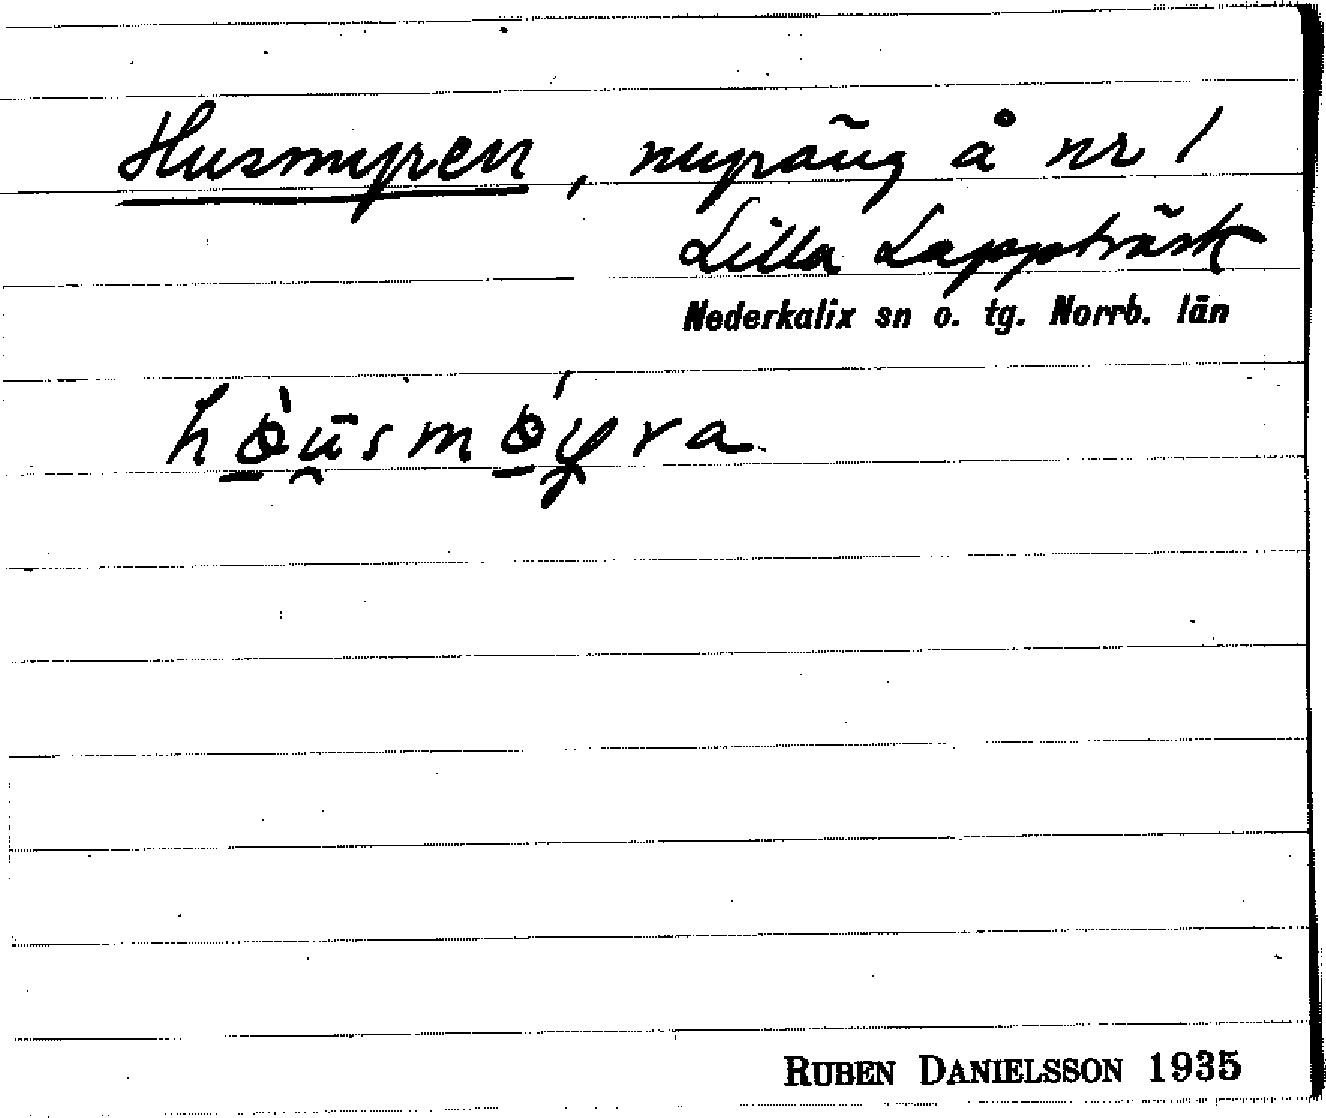 Husmyren, myräng å nr 1
Lilla Lappträsk
Nederkalix sn o. tg. Norrb. län
hö̀u̯smö́y̯ra
RUBEN DANIELSSON 1935